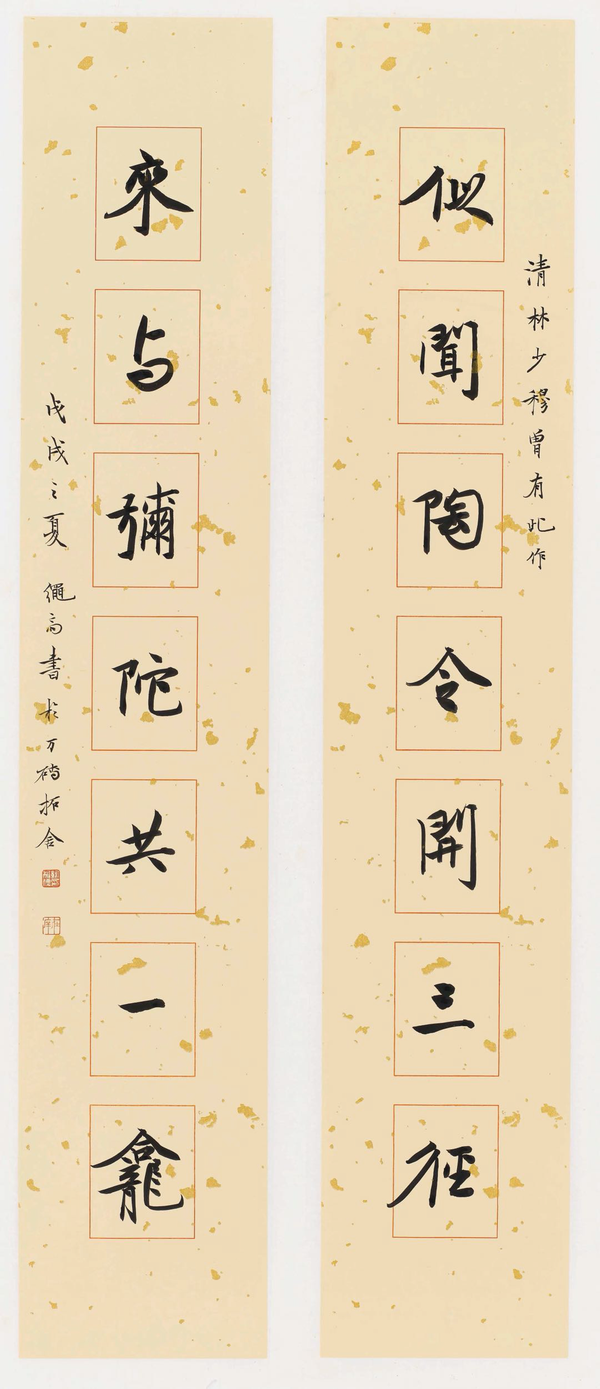 清林少穆曾有此作
似聞陶令開三徑
來与彌陀共一龕
戊戌之夏 繩高書於万礴拓舍